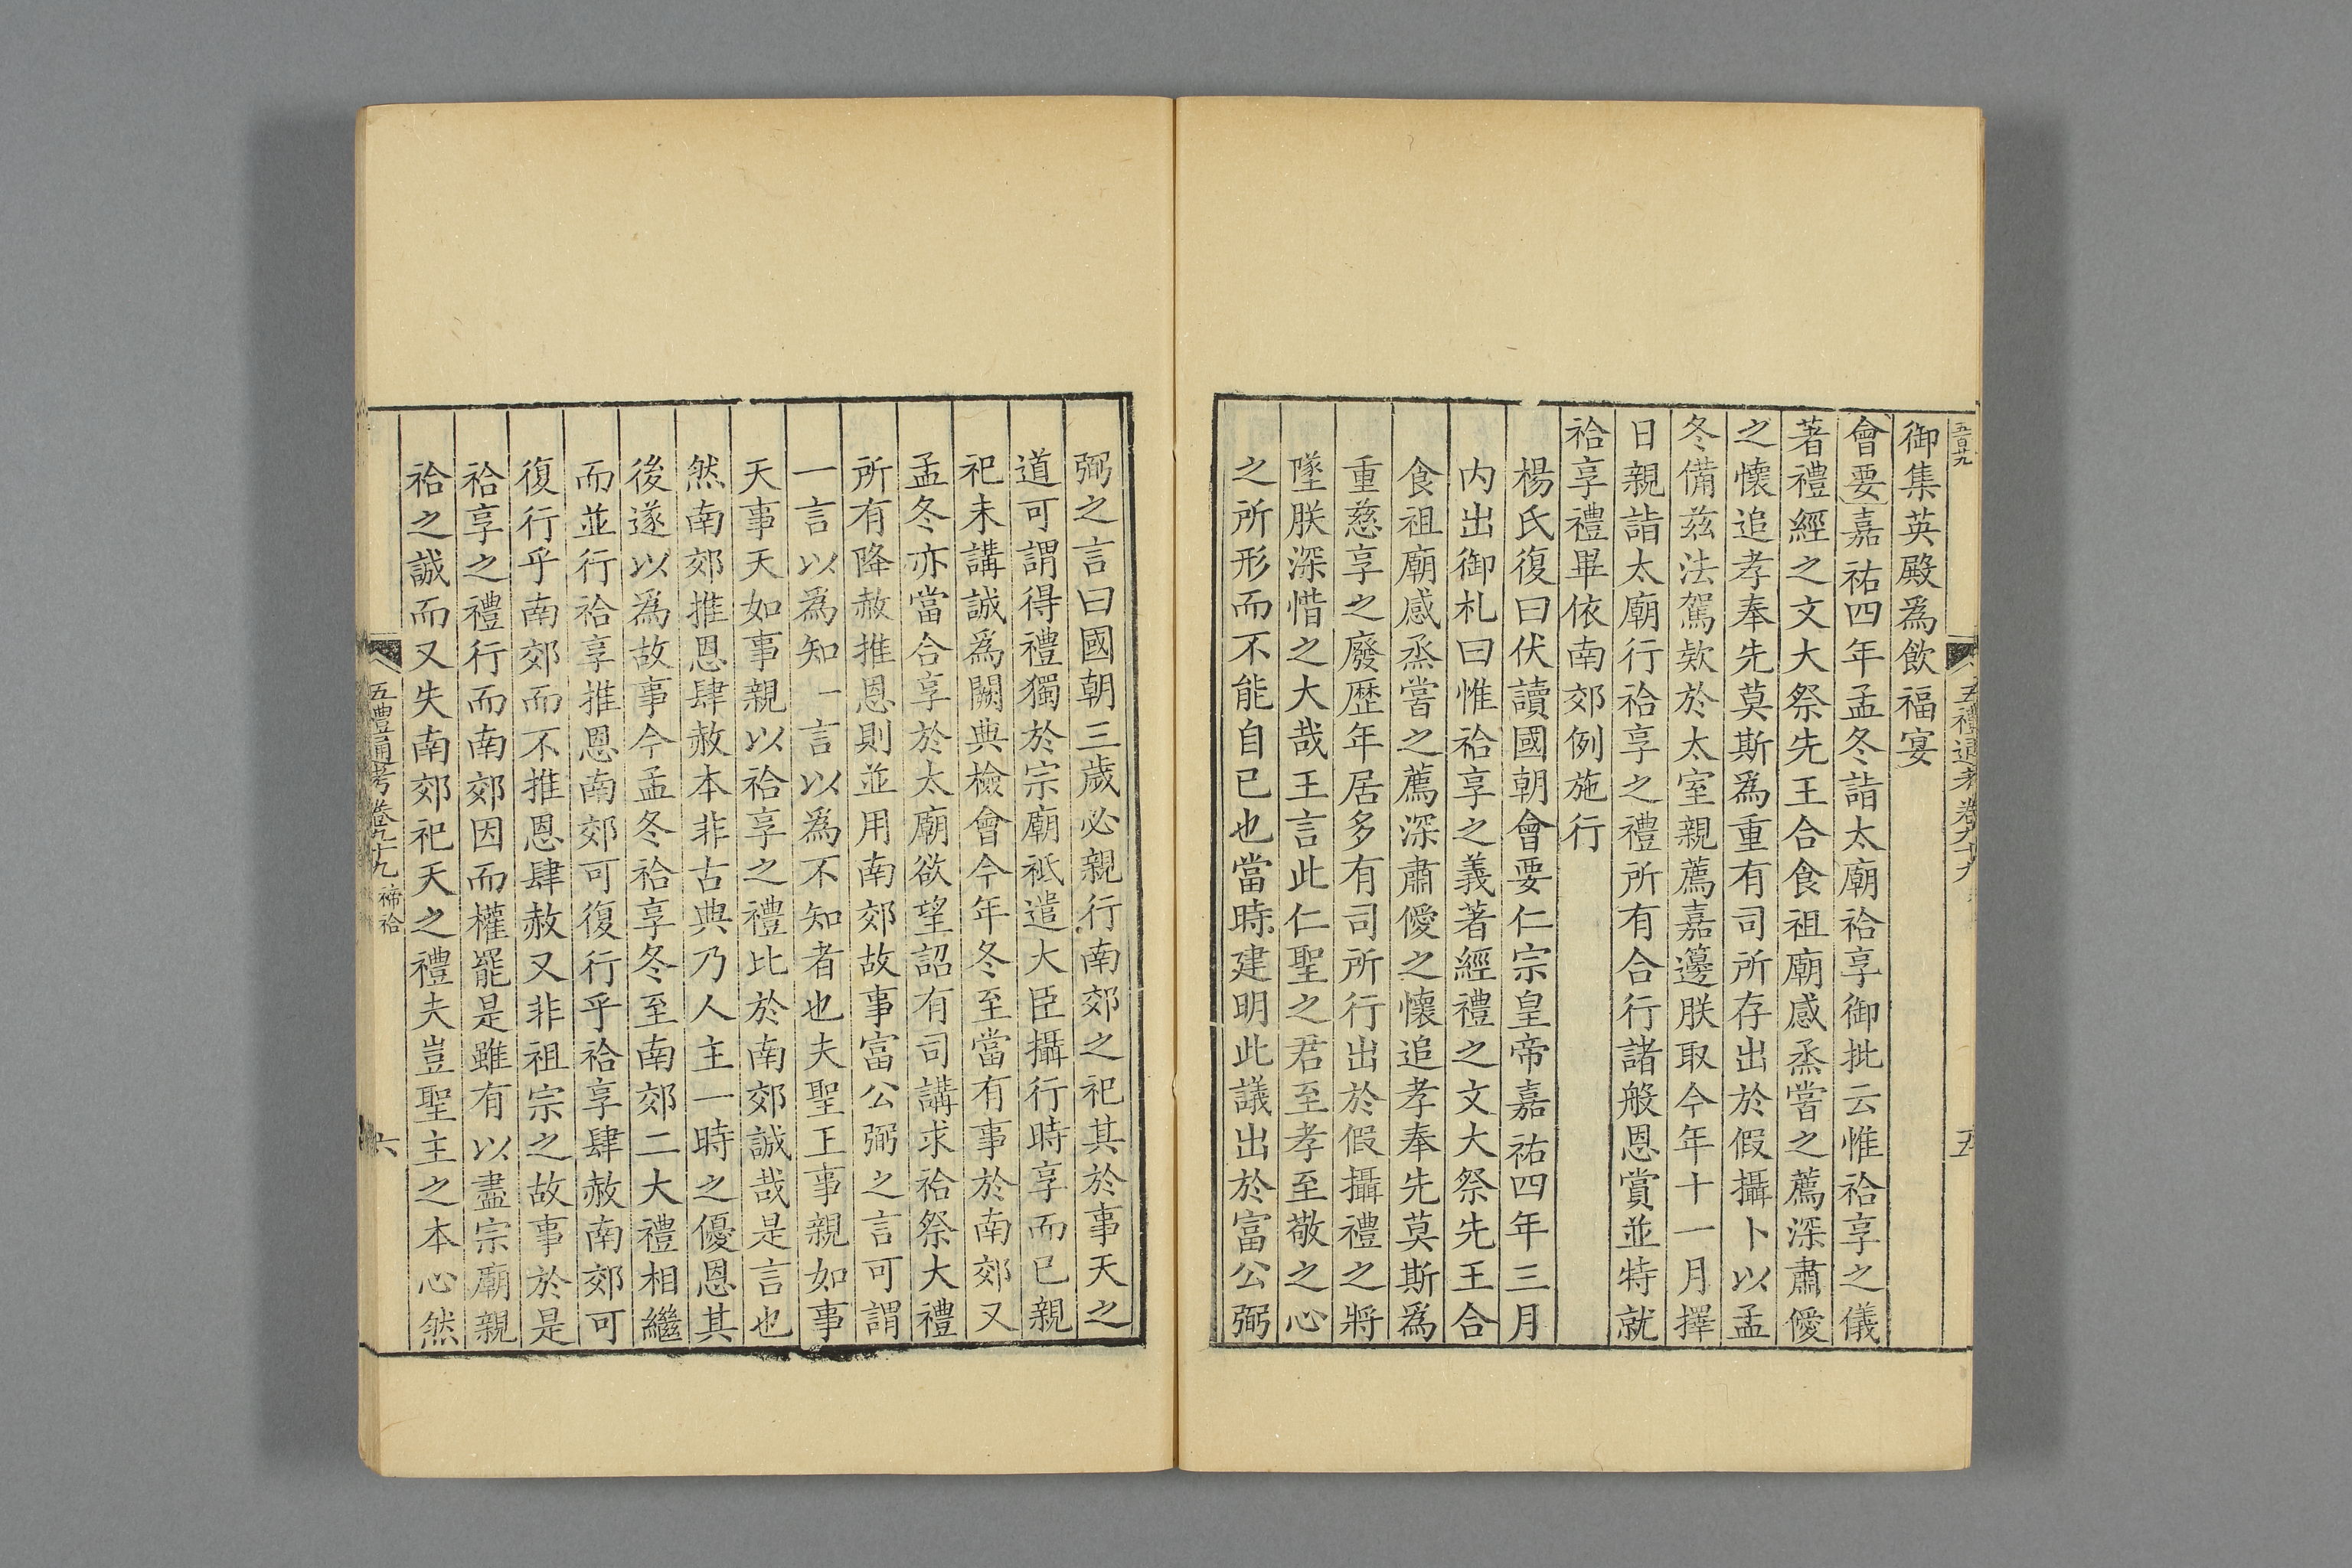 五百廿九
五禮通考卷九十九
五
御集英殿爲飲福宴
會要嘉祐四年孟冬詣太廟祫享御批云惟祫享之儀
著禮經之文大祭先王合食祖廟感烝嘗之薦深肅僾
之懷追孝奉先莫斯爲重有司所存出於假攝卜以孟
冬備兹法駕欵於太室親薦嘉籩朕取今年十一月擇
日親詣太廟行祫享之禮所有合行諸般恩賞並特就
祫享禮畢依南郊例施行
楊氏復曰伏讀國朝會要仁宗皇帝嘉祐四年三月
内出御札曰惟祫享之義著經禮之文大祭先王合
食祖廟感烝嘗之薦深肅僾之懷追孝奉先莫斯爲
重慈享之廢歷年居多有司所行出於假攝禮之將
墜朕深惜之大哉王言此仁聖之君至孝至敬之心
之所形而不能自已也當時建明此議出於富公弼
弼之言曰國朝三歲必親行南郊之祀其於事天之
道可謂得禮獨於宗廟祗遣大臣攝行時享而已親
祀未講誠爲闕典檢會今年冬至當有事於南郊又
孟冬亦當合享於太廟欲望詔有司講求祫祭大禮
所有降赦推恩則並用南郊故事富公弼之言可謂
一言以爲知一言以爲不知者也夫聖王事親如事
天事天如事親以祫享之禮比於南郊誠哉是言也
然南郊推恩肆赦本非古典乃人主一時之優恩其
後遂以爲故事今孟冬祫享冬至南郊二大禮相繼
而並行祫享推恩南郊可復行乎祫享肆赦南郊可
復行乎南郊而不推恩肆赦又非祖宗之故事於是
祫享之禮行而南郊因而權罷是雖有以盡宗廟親
祫之誠而又失南郊祀天之禮夫豈聖主之本心然
五禮通考卷九十九 禘祫
六